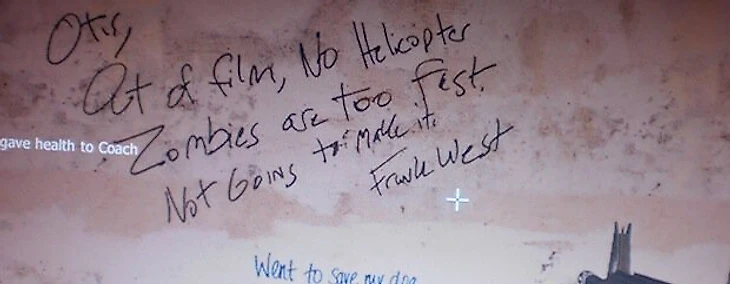 Otis,
Out of film, No Helicopter
Zombies are too fast.
gave health to Coach
Not Going to make it.
Frank West
Went to save my dog